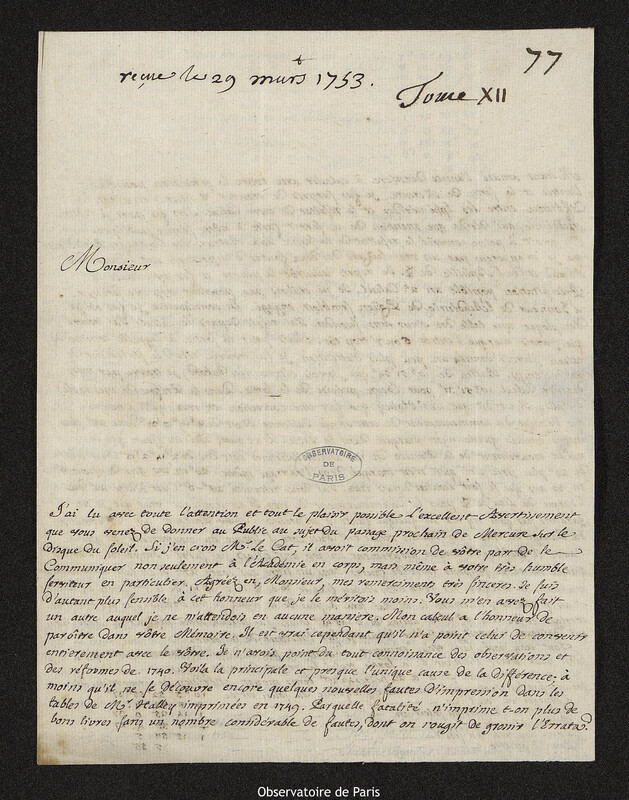 77
reçue le 29 mars 1753.
Tome XII
Monsieur
OBSERVATOIRE
DE
PARIS
J'ai lu avec toute l'attention et tout le plaisir possible l'excellent Avertissement
que vous venez de donner au Public au sujet du passage prochain de Mercure sur le
Disque du Soleil. Si j'en crois Mr. le Cat, il avoit commission de vôtre part de le
Communiquer non seulement à l'Académie en corps, mais même à vôtre très humble
serviteur en particulier. Agréez en, Monsieur, mes remerciments très sinceres. Je suis
d'autant plus sensible à cet honneur que je le meritois moins. Vous m'en avez fait
un autre auquel je ne m'attendois en aucune maniere. Mon calcul a l'honneur de
paroître dans vôtre Mémoire. Il est vrai cependant qu'il n'a point celui de convenir
entierement avec le vôtre. Je n'avois point du tout connoissance des observations et
des réformes de 1740. Voila la principale et presque l'unique cause de la différence; à
moins qu'il ne se découvre encore quelques nouvelles fautes d'impression dans les
tables de Mr. Halley imprimées en 1749. Par quelle fatalité n'imprime t-on plus de
bons livres sans un nombre considérable de fautes, dont on rougit de grossir l'Errata?
Observatoire de Paris